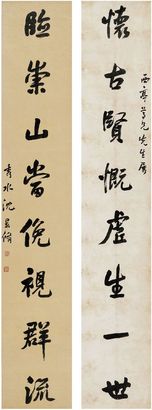 西亭尊兄先生屬
懷古賢慨虛生一世
臨崇山當俛視群流
秀水沈景脩